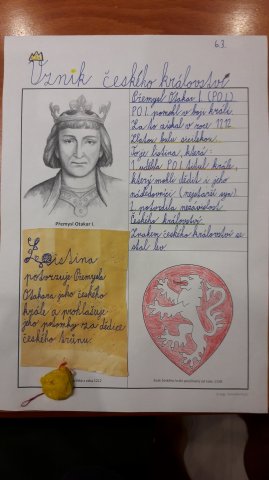 6.3.
Vznik českého království
Přemysl Otakar I. (PO I.)
PO I. pomohl v boji králi.
Za to získal v roce 1212
Zlatou bulu sicilskou.
To je listina, která:
1. udělila PO I. titul krále,
který mohli dědit i jeho
následovníci (nejstarší syn)
2. potvrdila nezávislost
Českého království.
Znakem českého království se
stal lev
Přemysl Otakar I.
Listina
potvrzuje Přemysla
Otakara jeho českého
krále a prohlašuje
jeho potomky za dědice
českého trůnu.
z roku 1212